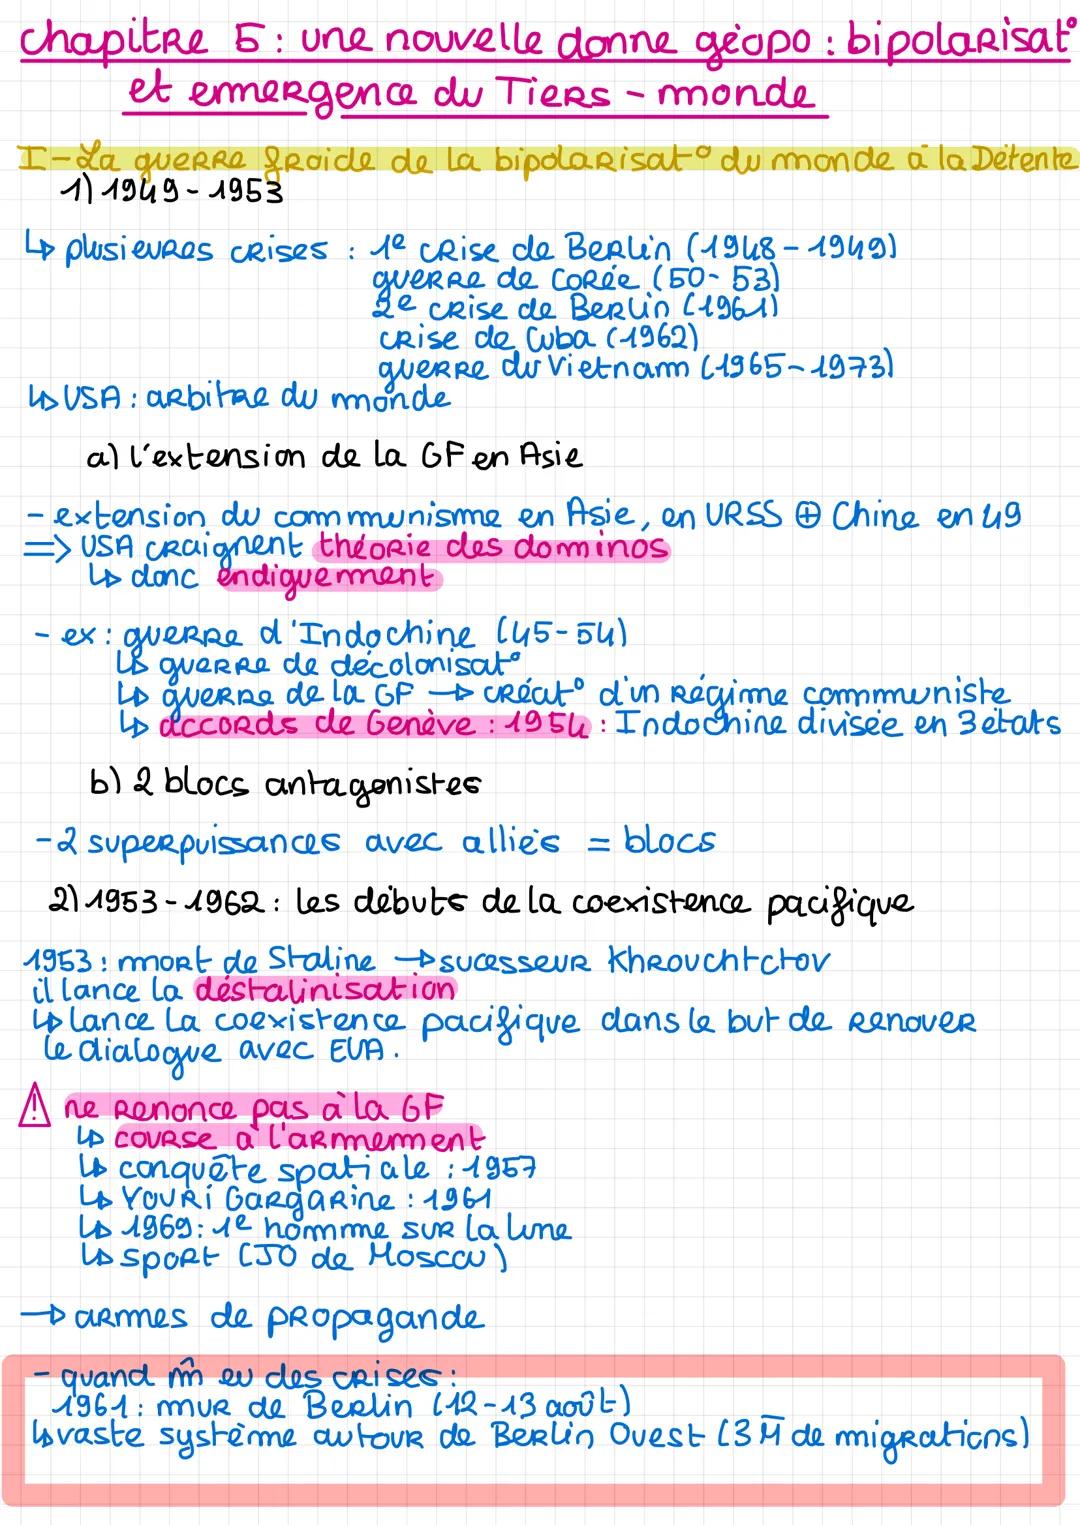 chapitre 5 : une nouvelle donne géopo : bipolarisat°
et emergence du Tiers - monde
I - La guerre froide de la bipolarisat° du monde à la Détente
1) 1949 - 1953
↳ plusieures crises : 1e crise de Berlin (1948 - 1949)
guerre de Corée (50 - 53)
2e crise de Berlin (1961)
crise de Cuba (1962)
guerre du Vietnam (1965 - 1973)
↳ USA : arbitre du monde
a) l'extension de la GF en Asie
- extension du communisme en Asie, en URSS ⊕ Chine en 49
=> USA craignent théorie des dominos
↳ donc endiguement
- ex : guerre d'Indochine (45-54)
↳ guerre de décolonisat°
↳ guerre de la GF → créat° d'un régime communiste
↳ accords de Genève : 1954 : Indochine divisée en 3 états
b) 2 blocs antagonistes
- 2 superpuissances avec alliés = blocs
2) 1953 - 1962 : les débuts de la coexistence pacifique
1953 : mort de Staline → sucesseur Khrouchtctov
il lance la déstalinisation
↳ lance la coexistence pacifique dans le but de renover
le dialogue avec EUA.
⚠ ne renonce pas à la GF
↳ course à l'armement
↳ conquête spatiale : 1957
↳ Youri Gargarine : 1961
↳ 1969 : 1e homme sur la lune
↳ sport (JO de Moscou)
→ armes de propagande
- quand m̂ eu des crises :
1961 : mur de Berlin (12-13 août)
↳ vaste système autour de Berlin Ouest (3 M̄ de migrations)